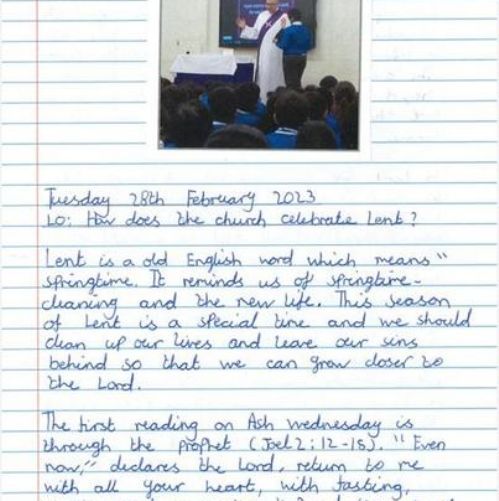 Tuesday 28th February 2023
LO: How does the church celebrate Lent?
Lent is a old English word which means "
springtime. It reminds us of springtime-
cleaning and the new life. This season
of Lent is a special time and we should
clean up our lives and leave our sins
behind so that we can grow closer to
the Lord.
The first reading on Ash Wednesday is
through the prophet (Joel 2:12-18). "Even
now," declares the Lord, return to me
with all your heart, with fasting,